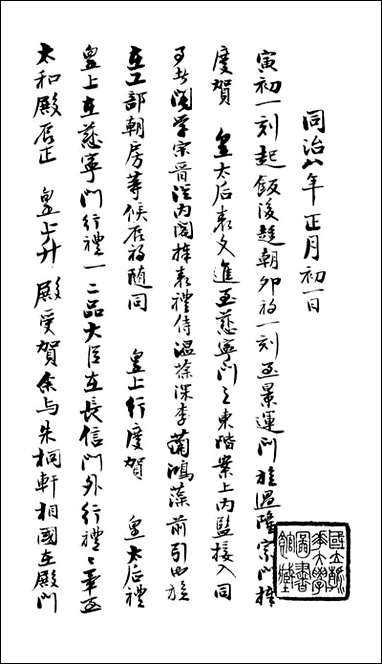 同治八年正月初一日
寅初一刻起飯後趨朝卯初一刻至景運門旋過隆宗門捧
慶賀 皇太后表文進至慈寧門之東階案上內監接入同
事者閣學宗晉從內閣捧表禮侍溫葆深李鴻藻前引也旋
在工部朝房等候辰初隨同 皇上行慶賀 皇太后禮
皇上在慈寧門行禮一二品大臣在長信門外行禮禮畢至
太和殿辰正 皇上升 殿受賀余与朱桐軒相國在殿門
國立
大學
圖書
館藏